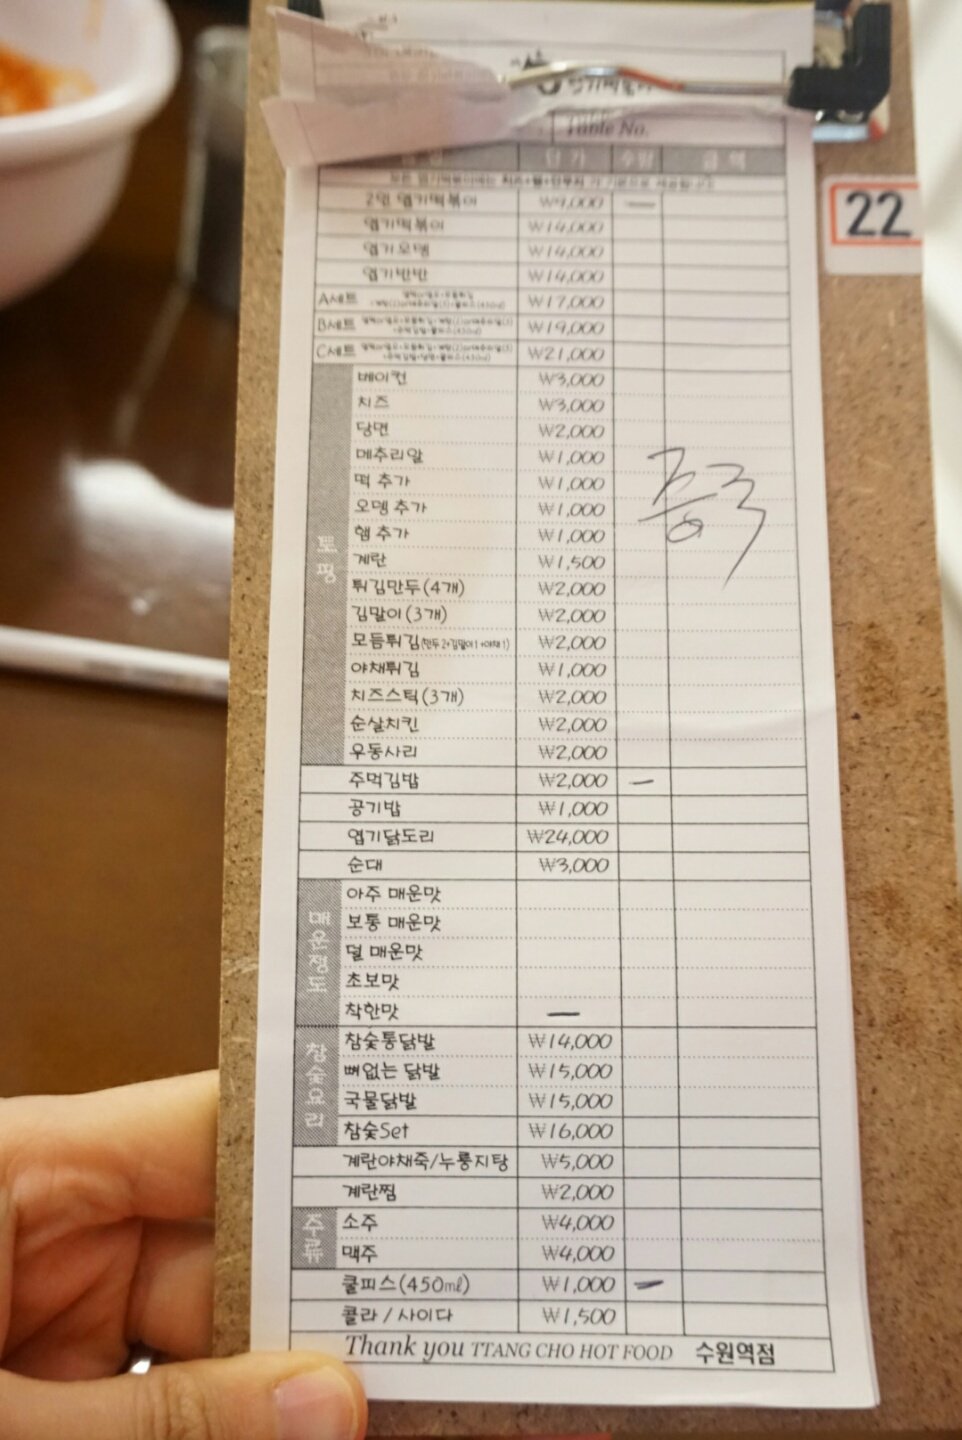 Table No.
단 가 수량 금 액
22
2인 엽기떡볶이 ₩9,000 —
엽기떡볶이 ₩14,000
엽기오뎅 ₩14,000
엽기반반 ₩14,000
A세트 ₩17,000
B세트 ₩19,000
C세트 ₩21,000
토핑
베이컨 ₩3,000
치즈 ₩3,000
당면 ₩2,000
메추리알 ₩1,000
떡 추가 ₩1,000
오뎅 추가 ₩1,000
햄 추가 ₩1,000
중국
계란 ₩1,500
튀김만두(4개) ₩2,000
김말이(3개) ₩2,000
모듬튀김(만두2+김말이1+야채1) ₩2,000
야채튀김 ₩1,000
치즈스틱(3개) ₩2,000
순살치킨 ₩2,000
우동사리 ₩2,000
주먹김밥 ₩2,000 —
공기밥 ₩1,000
엽기닭도리 ₩24,000
순대 ₩3,000
매운정도
아주 매운맛
보통 매운맛
덜 매운맛
초보맛
착한맛 —
참숯요리
참숯통닭발 ₩14,000
뼈없는 닭발 ₩15,000
국물닭발 ₩15,000
참숯Set ₩16,000
계란야채죽/누룽지탕 ₩5,000
계란찜 ₩2,000
주류
소주 ₩4,000
맥주 ₩4,000
쿨피스(450㎖) ₩1,000 —
콜라 / 사이다 ₩1,500
Thank you TTANG CHO HOT FOOD 수원역점